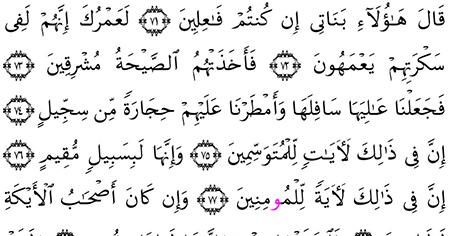 قَالَ هَـٰٓؤُلَآءِ بَنَاتِى إِن كُنتُمْ فَـٰعِلِينَ ﴿٧١﴾ لَعَمْرُكَ إِنَّهُمْ لَفِى
سَكْرَتِهِمْ يَعْمَهُونَ ﴿٧٢﴾ فَأَخَذَتْهُمُ ٱلصَّيْحَةُ مُشْرِقِينَ ﴿٧٣﴾
فَجَعَلْنَا عَـٰلِيَهَا سَافِلَهَا وَأَمْطَرْنَا عَلَيْهِمْ حِجَارَةً مِّن سِجِّيلٍ ﴿٧٤﴾
إِنَّ فِى ذَٰلِكَ لَـَٔايَـٰتٍ لِّلْمُتَوَسِّمِينَ ﴿٧٥﴾ وَإِنَّهَا لَبِسَبِيلٍ مُّقِيمٍ ﴿٧٦﴾
إِنَّ فِى ذَٰلِكَ لَـَٔايَةً لِّلْمُومِنِينَ ﴿٧٧﴾ وَإِن كَانَ أَصْحَـٰبُ ٱلْأَيْكَةِ